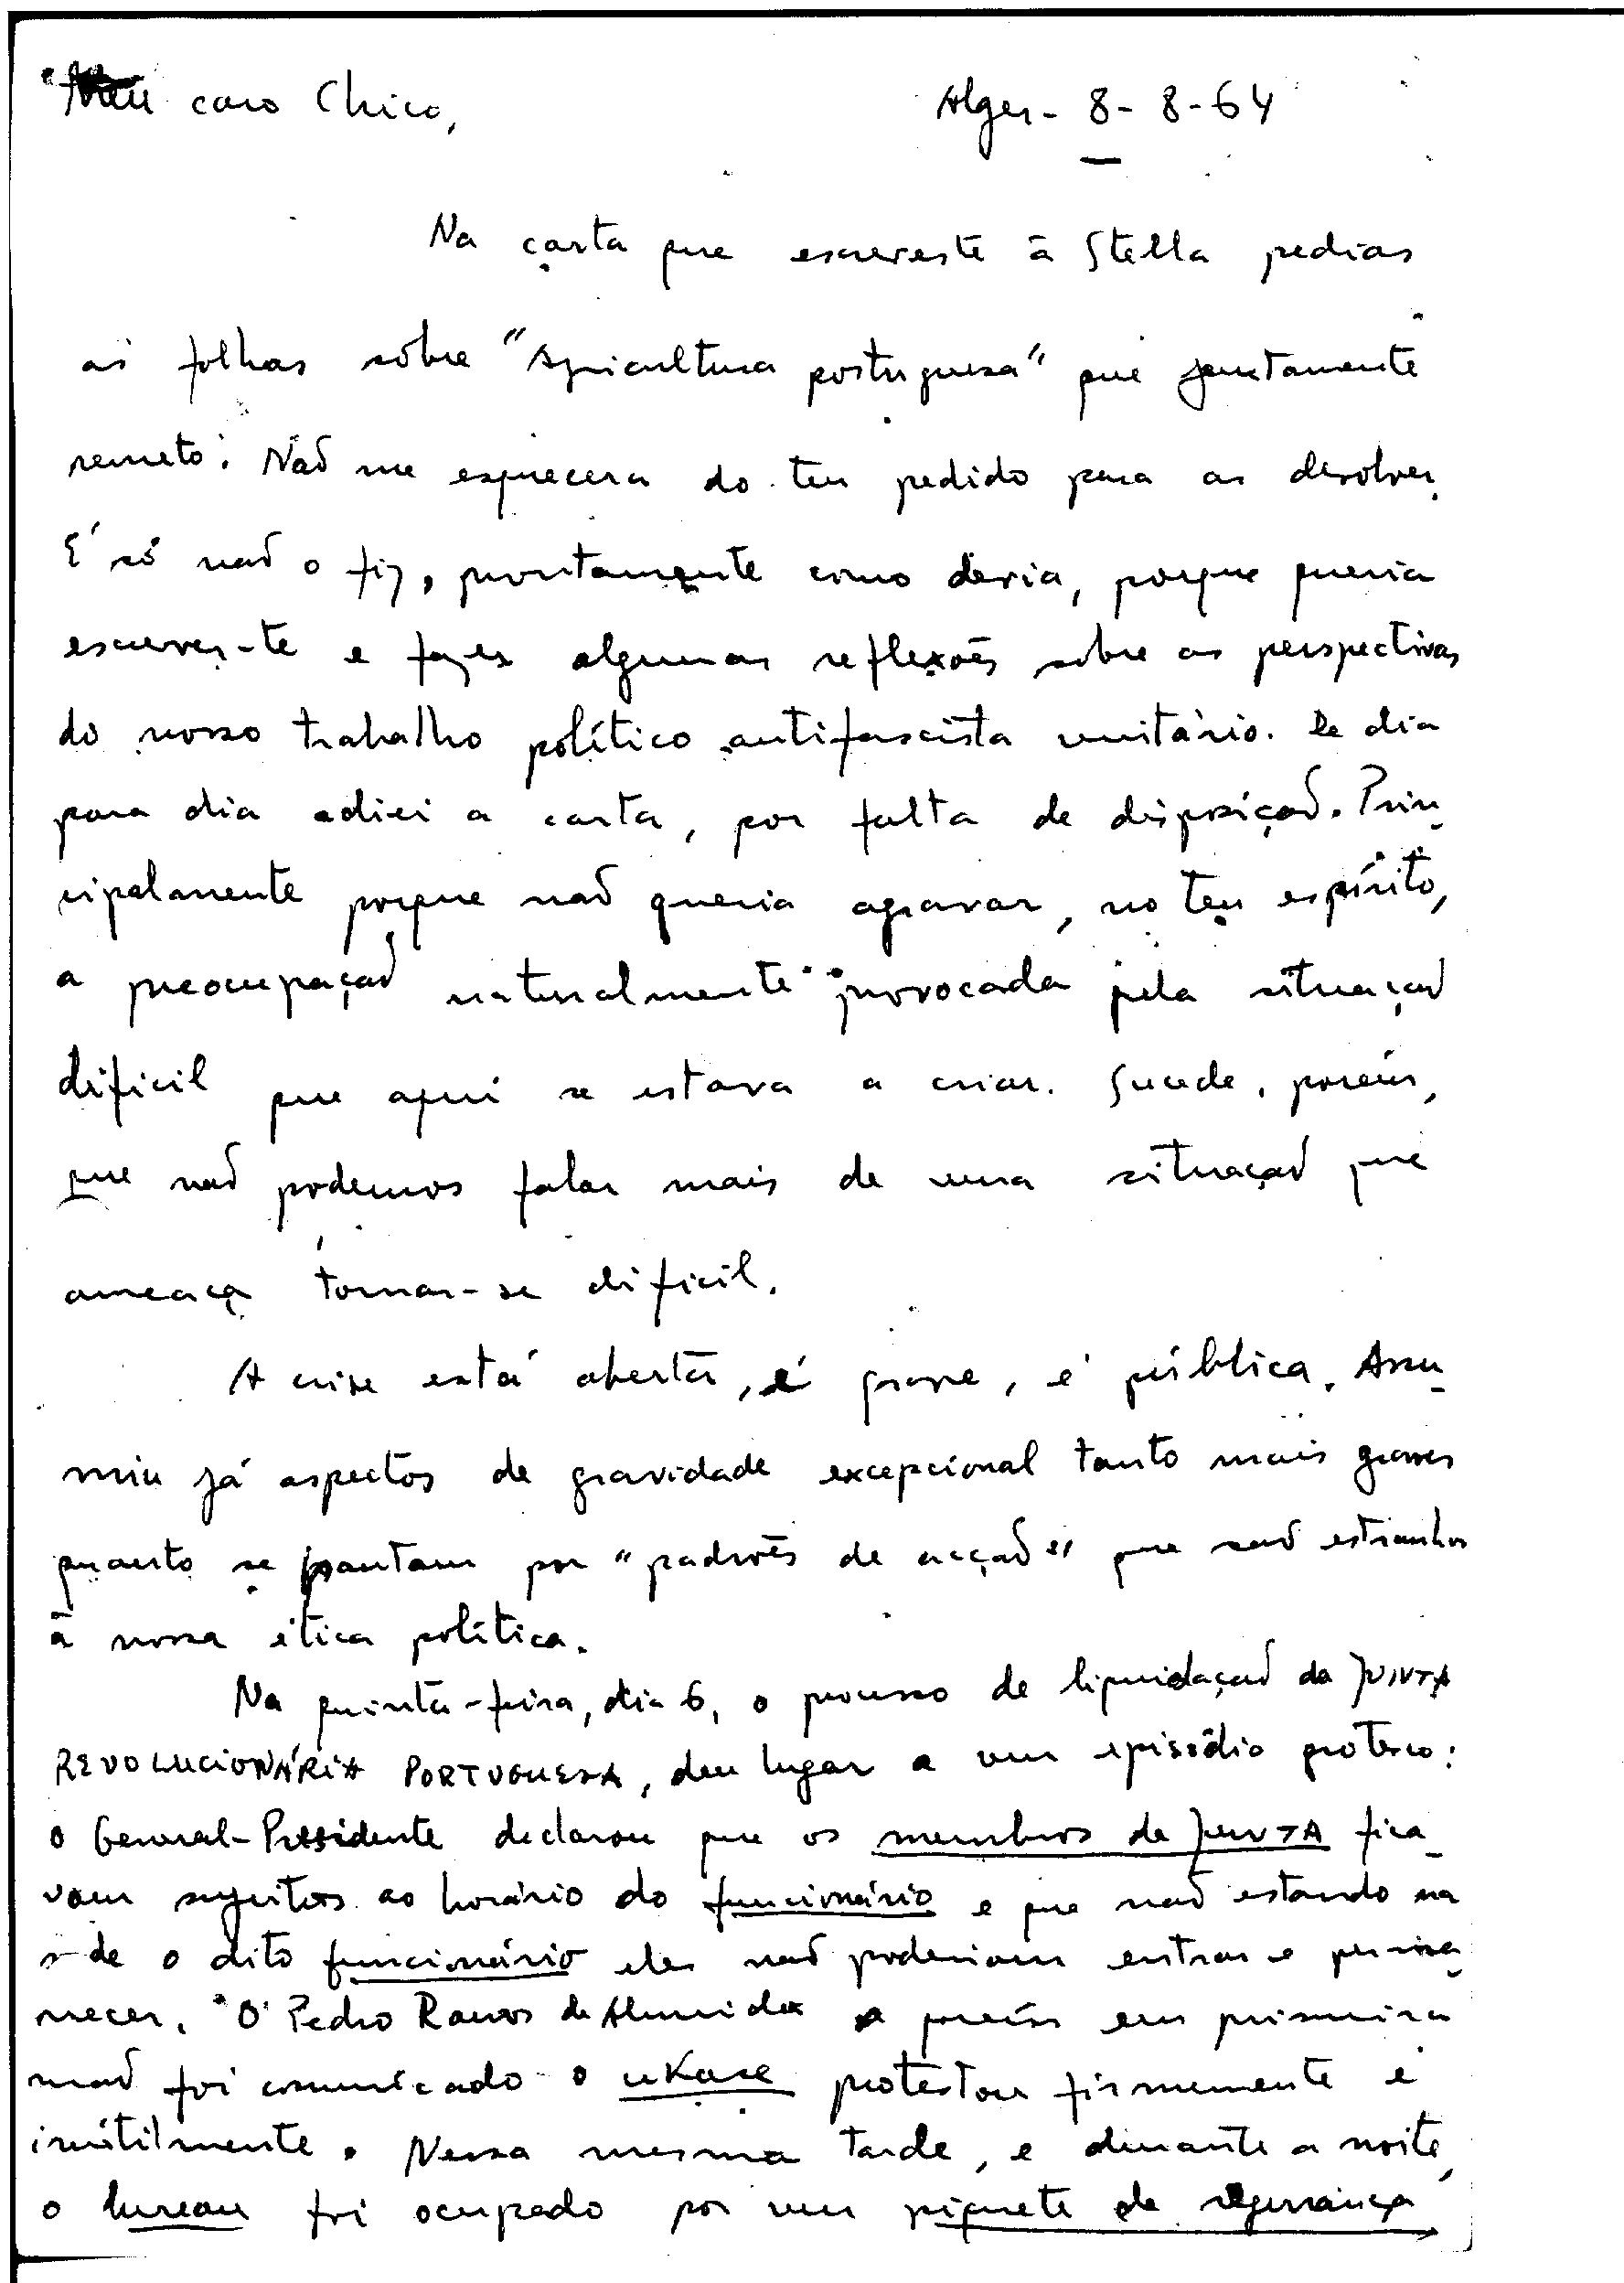 Meu caro Chico,
Alger - 8-8-64
Na carta que escreveste à Stella pedias
as folhas sôbre "Agricultura portuguesa" que juntamente
remeto. Não me esquecera do teu pedido para as devolver.
E só não o fiz, prontamente como devia, porque queria
escrever-te e fazer algumas reflexões sôbre as perspectivas
do nosso trabalho político antifascista unitário. De dia
para dia adiei a carta, por falta de disposição. Prin-
cipalmente porque não queria agravar, no teu espírito,
a preocupação naturalmente provocada pela situação
difícil que aqui se estava a criar. Sucede, porém,
que não podemos falar mais de uma situação que
ameaça tornar-se difícil.
A crise está aberta, é grave, é pública. Assu-
miu já aspectos de gravidade excepcional tanto mais graves
quanto se pautam por "padrões de acção" que são estranhos
à nossa ética política.
Na quinta-feira, dia 6, o processo de liquidação da JUNTA
REVOLUCIONÁRIA PORTUGUESA, deu lugar a um episódio grotesco:
o General-Presidente declarou que os membros da JUNTA fica-
vam sujeitos ao horário do funcionário e que não estando na
sede o dito funcionário eles não poderiam entrar e perma-
necer. O Pedro Ramos de Almeida a quem em primeira
mão foi comunicado o ukase protestou firmemente e
inútilmente. Nessa mesma tarde, e durante a noite,
o bureau foi ocupado por um piquete de segurança